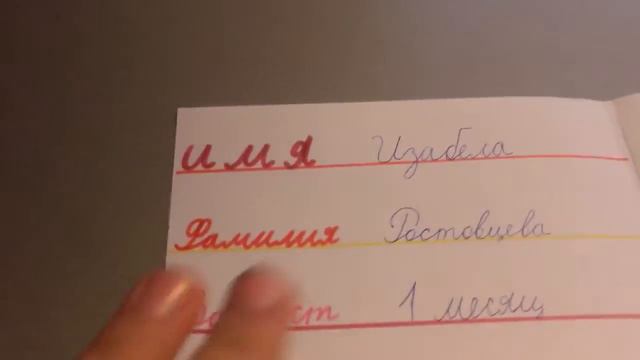 имя Изабела
Фамилия Ростовцева
1 месяц